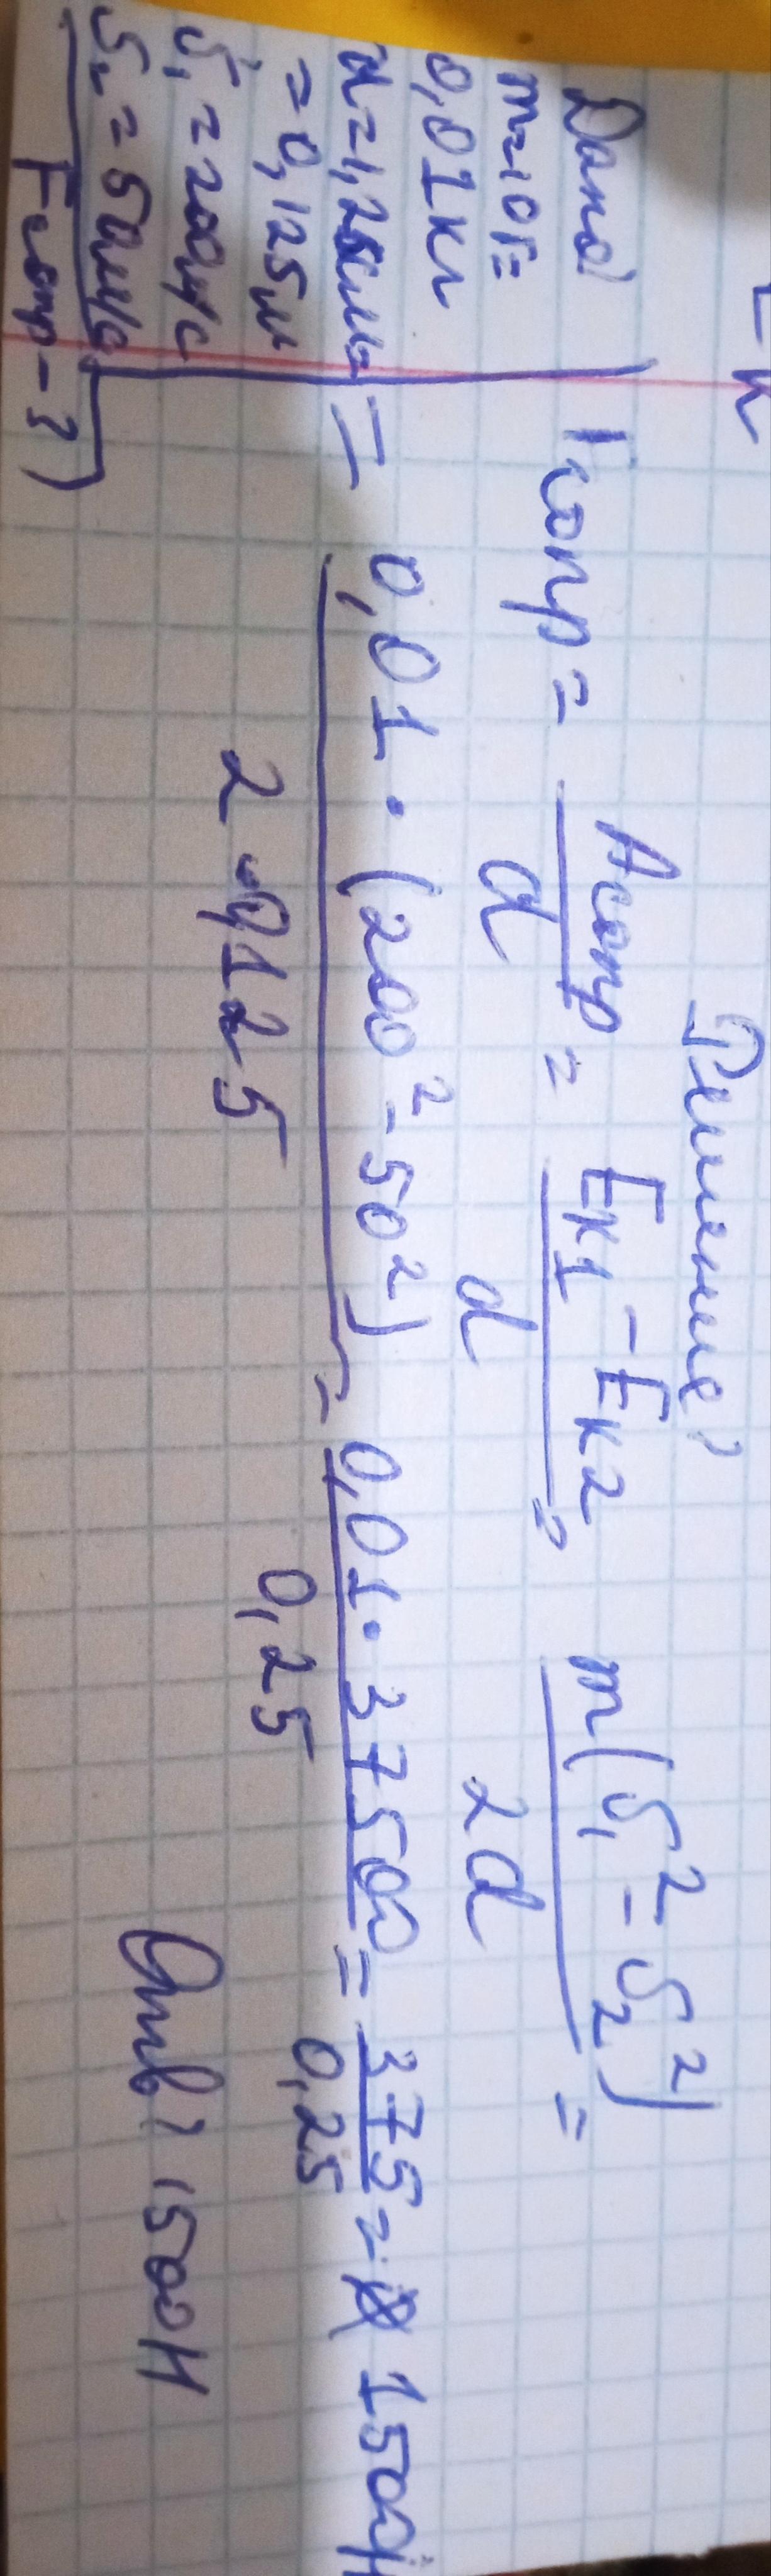 Дано:
m=10г=
0,01кг
d=1,25см=
=0,125м
υ₁=200м/с
υ₂=50м/с
Fсопр-?
Решение:
Fсопр = Aсопр/d = (Eк1 - Eк2)/d = m(υ₁² - υ₂²)/2d =
= 0,01·(200²-50²)/2·0,125 = 0,01·37500/0,25 = 375/0,25 = 1500Н
Отв: 1500Н